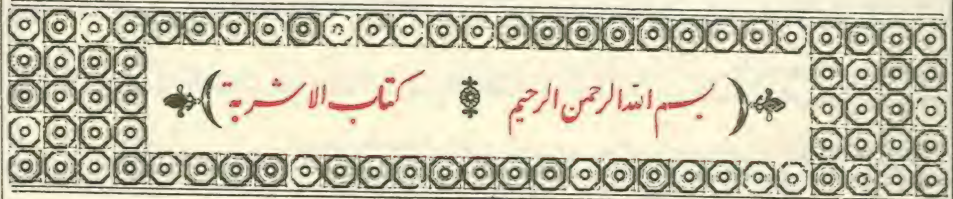 بسم الله الرحمن الرحيم كتاب الاشربة